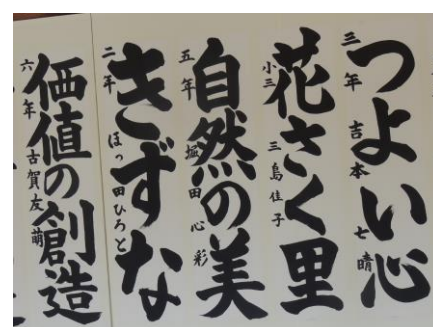 つよい心
三年 吉本七晴
花さく里
小三 三島佳子
自然の美
五年 堀田心彩
きずな
二年 ほっ田ひろと
価値の創造
六年 古賀友萌